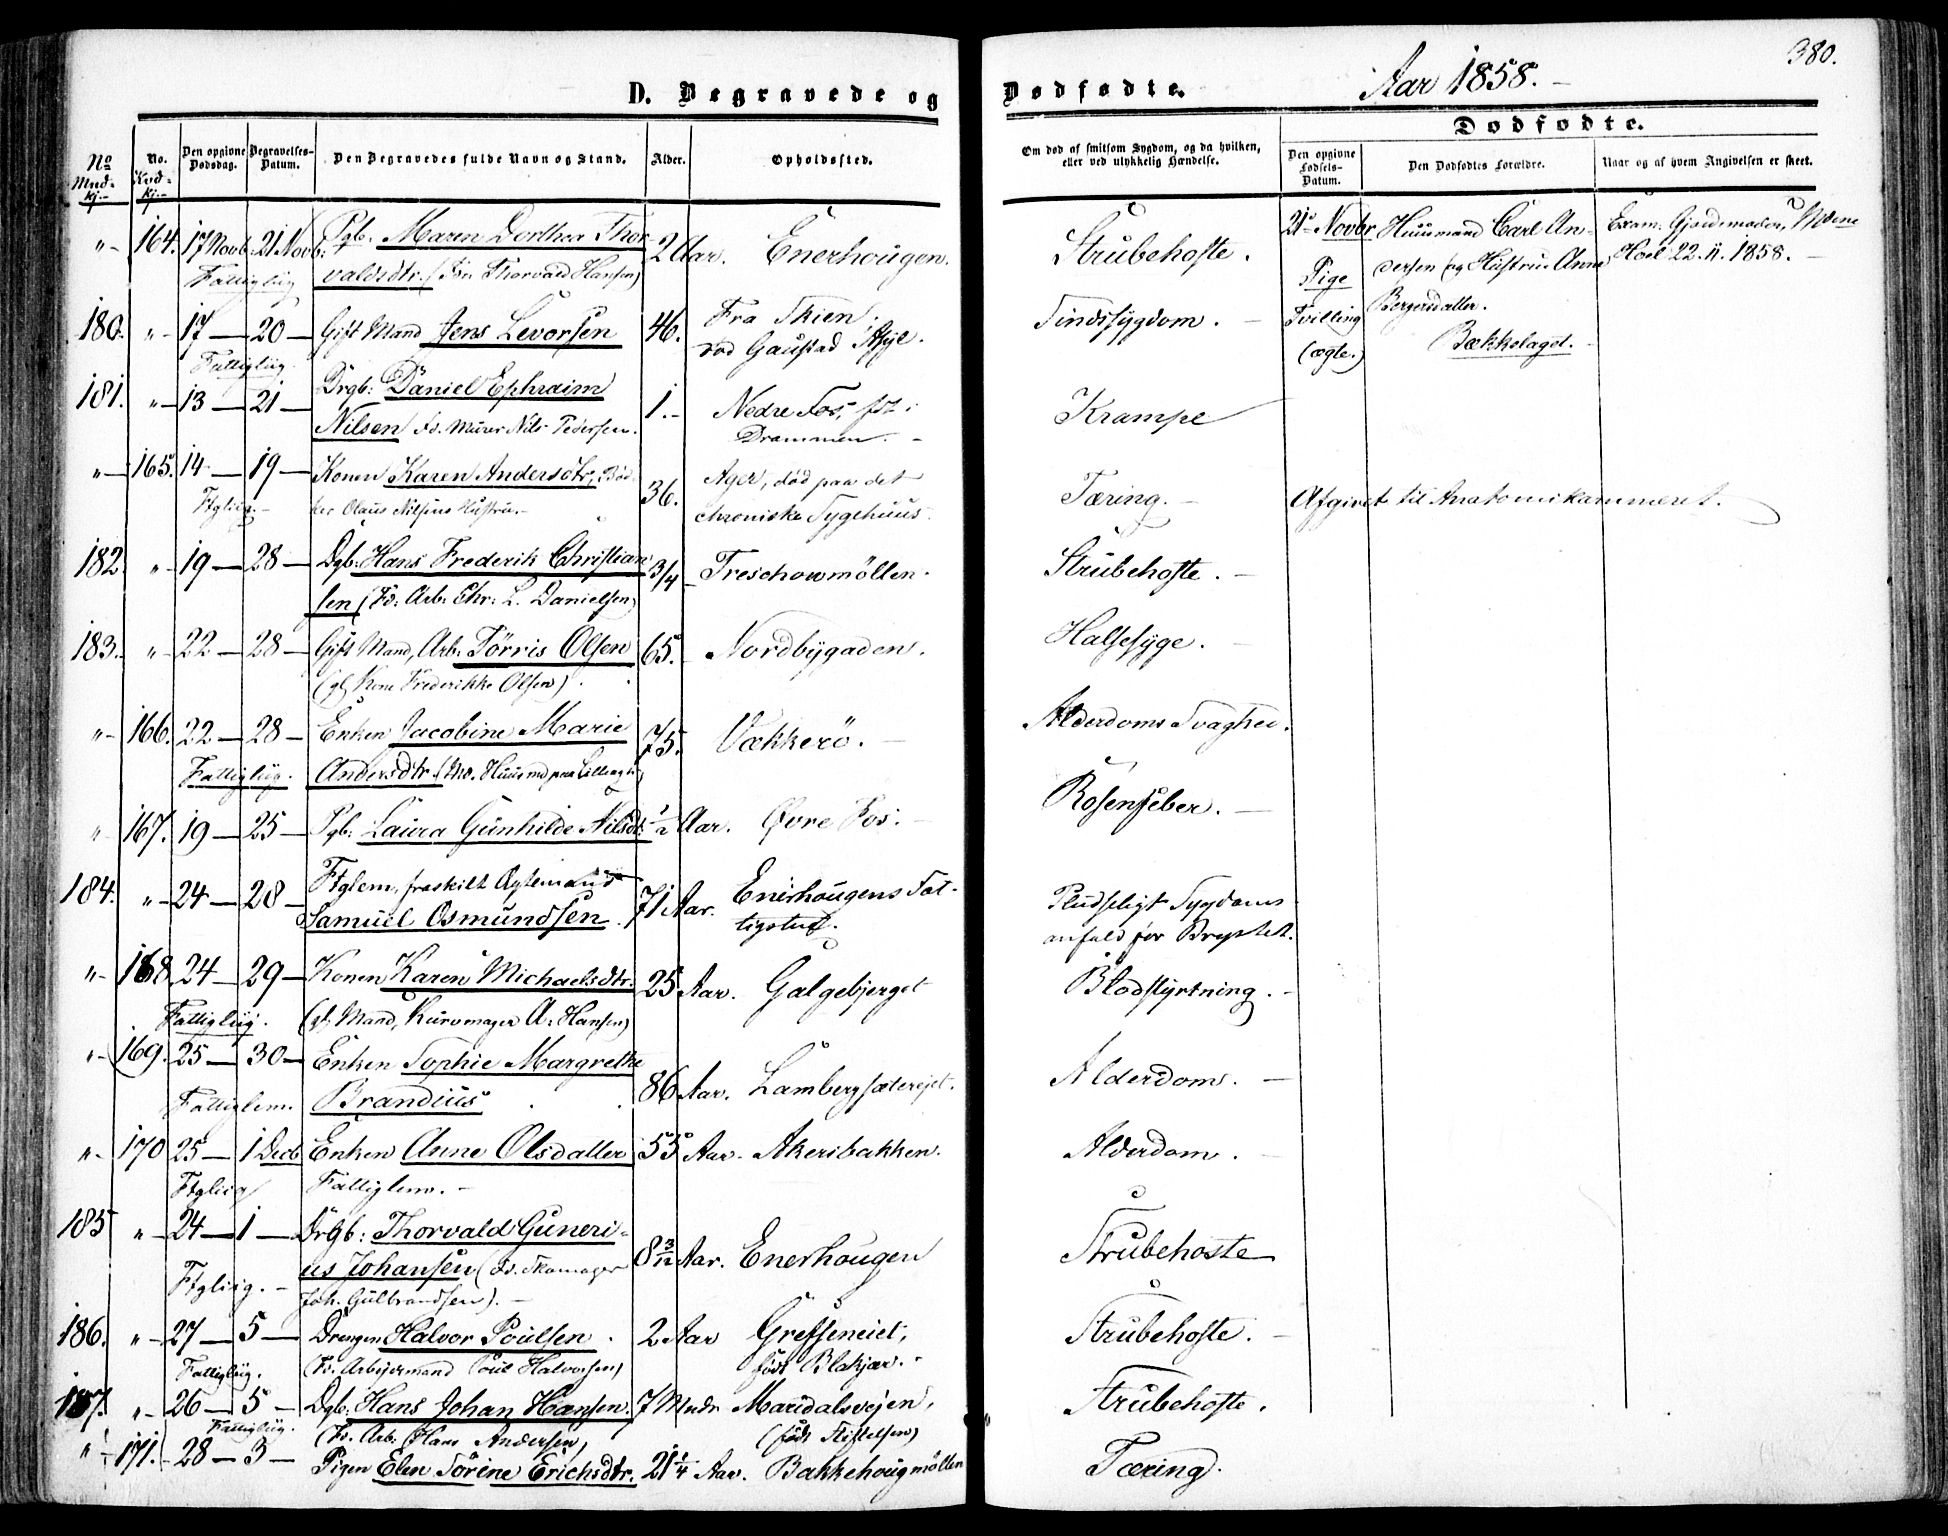 380.
D. Begravede og Dødfødte. Aar 1858. –
Dødfødte.
No Mnd= kj.–
No. Kvd= kj.–
Den opgivne Dødsdag.
Begravelses-Datum.
Den Begravedes fulde Navn og Stand.
Alder.
Opholdssted.
Om død af smitsom Sygdom, og da hvilken, eller ved ulykkelig Hændelse.
Den opgivne Fødsels-Datum.
Den Dødfødtes Forældre.
Naar og af hvem Angivelsen er skeet.
"- 164. 17 Novb. 21 Novb: Pgb. Maren Dorthea Thor 2 Aar. Enerhougen. Strubehoste.
Fattiglig valdsdtr. (Fdr. Thorvald Hansen)
21de Novbr Huusmand Carl An- Exam: Gjordemoder, Mdme
Pige dersen og Hustru Anne Hoel 22. 11. 1858. –
Tvilling Bergersdatter.
(ægte.) Bækkelaget.
180. "- 17 — 20 — Gift Mand Jens Levorsen 46. Fra Skien. Sindssygdom. –
Fattiglig. ved Gaustad Asyl.
181. "- 13 — 21 — Drgb: Daniel Ephraim 1.- Nedre Fos, fdt i Krampe
Nilsen Fd. Murer Nils Pedersen. Drammen. –
"- 165. 14 — 19 — Konen Karen Andersdtr, Bød- 36. Ager, død paa det Tæring. – Afgivet til Anatomikammeret.
Ftglig.– ker Olaus Nilsens Hustru.– chroniske Sygehuus.
182. "- 19 — 28 — Dgb. Hans Frederik Christian 3/4 Treschowmöllen. Strubehoste. –
sen (Fd: Arb: Chr: L. Danielsen)
183. "- 22 — 28 — Gift Mand, Arb: Törris Olsen 65. Nordbygaden. Halsesyge. –
(gl. Kone Frederikke Olsen).
"- 166. 22 — 28 — Enken Jacobine Marie 75. Vækkerö. – Alderdoms Svaghed.
Fattiglig. Andersdtr
"- 167. 19 — 25 — Pgb: Laura Gunhilde Nilsdtr 1/2 Aar. Øvre Fos. – Rosenfeber. –
184. "- 24 — 28 — Ftglem, fraskilt Ægtemand 71 Aar. Enerhougens Fat- Pludseligt Sygdoms
Samuel Osmundsen. tigstue. anfald for Brystet.
"- 168. 24 — 29 — Konen Karen Michaelsdtr. 25 Aar. Galgebjerget Blodstyrtning. –
Fattiglig. (gl. Mand, Kurvmager A: Hansen)
"- 169. 25 — 30 — Enken Sophie Margrethe 86 Aar. Lambergsæterejet. Alderdom. –
Fattiglem. Brandius
"- 170 25 — 1 Decb Enken Anne Olsdatter 55 Aar. Akersbakken. Alderdom. –
Ftglig Fattiglem. –
185 "- 24 — 1 — Drgb: Thorvald Guneri= 8 3/12 Aar. Enerhougen Strubehoste
Ftglig. – us Johansen (Fd. Skomager
Joh. Gulbrandsen). –
186. "- 27 — 5 — Drengen Halvor Poulsen. 2 Aar Grefseneiet, Strubehoste. –
Fattiglig. (Fd. Arbejdsmand Poul Halvorsen) født Blakjær. –
187. "- 26 — 5 — Dgb. Hans Johan Hansen. 7 Mndr Maridalsvejen, Strubehoste.
Fattiglig. (Fd. Arb. Hans Andersen) (født Stiftelsen)
"- 171. 28 — 3 — Pigen Elen Sörine Erichsdtr. 21 1/4 Aar. Bakkehougmöllen Tæring.